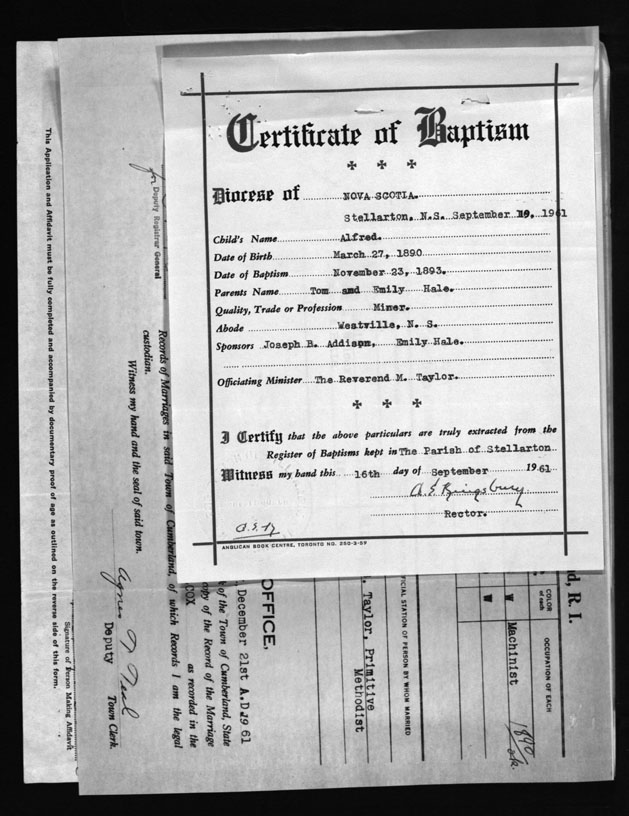 Certificate of Baptism
Diocese of NOVA SCOTIA.
Stellarton, N.S. September 19, 1961
Child's Name Alfred.
Date of Birth March 27, 1890
Date of Baptism November 23, 1893.
Parents Name Tom and Emily Hale.
Quality, Trade or Profession Miner.
Abode Westville, N. S.
Sponsors Joseph B. Addison, Emily Hale.
Officiating Minister The Reverend M. Taylor.
I Certify that the above particulars are truly extracted from the
Register of Baptisms kept in The Parish of Stellarton
Witness my hand this 16th day of September 1961
A.S. Kingsbury
Rector.
ANGLICAN BOOK CENTRE, TORONTO NO. 250-3-59
nd, R. I.
OCCUPATION OF EACH
COLOR
of each
Machinist
W
W
1890
ICIAL STATION OF PERSON BY WHOM MARRIED
. Taylor, Primitive
Methodist
OFFICE.
December 21st A.D. 19 61
of the Town of Cumberland, State
opy of the Record of the Marriage
COX as recorded in the
Records of Marriages in said Town of Cumberland, of which Records I am the legal
custodian.
Witness my hand and the seal of said town.
Agnes T. Neal
Deputy Town Clerk.
for Deputy Registrar General
Signature of Person Making Affidavit
This Application and Affidavit must be fully completed and accompanied by documentary proof of age as outlined on the reverse side of this form.